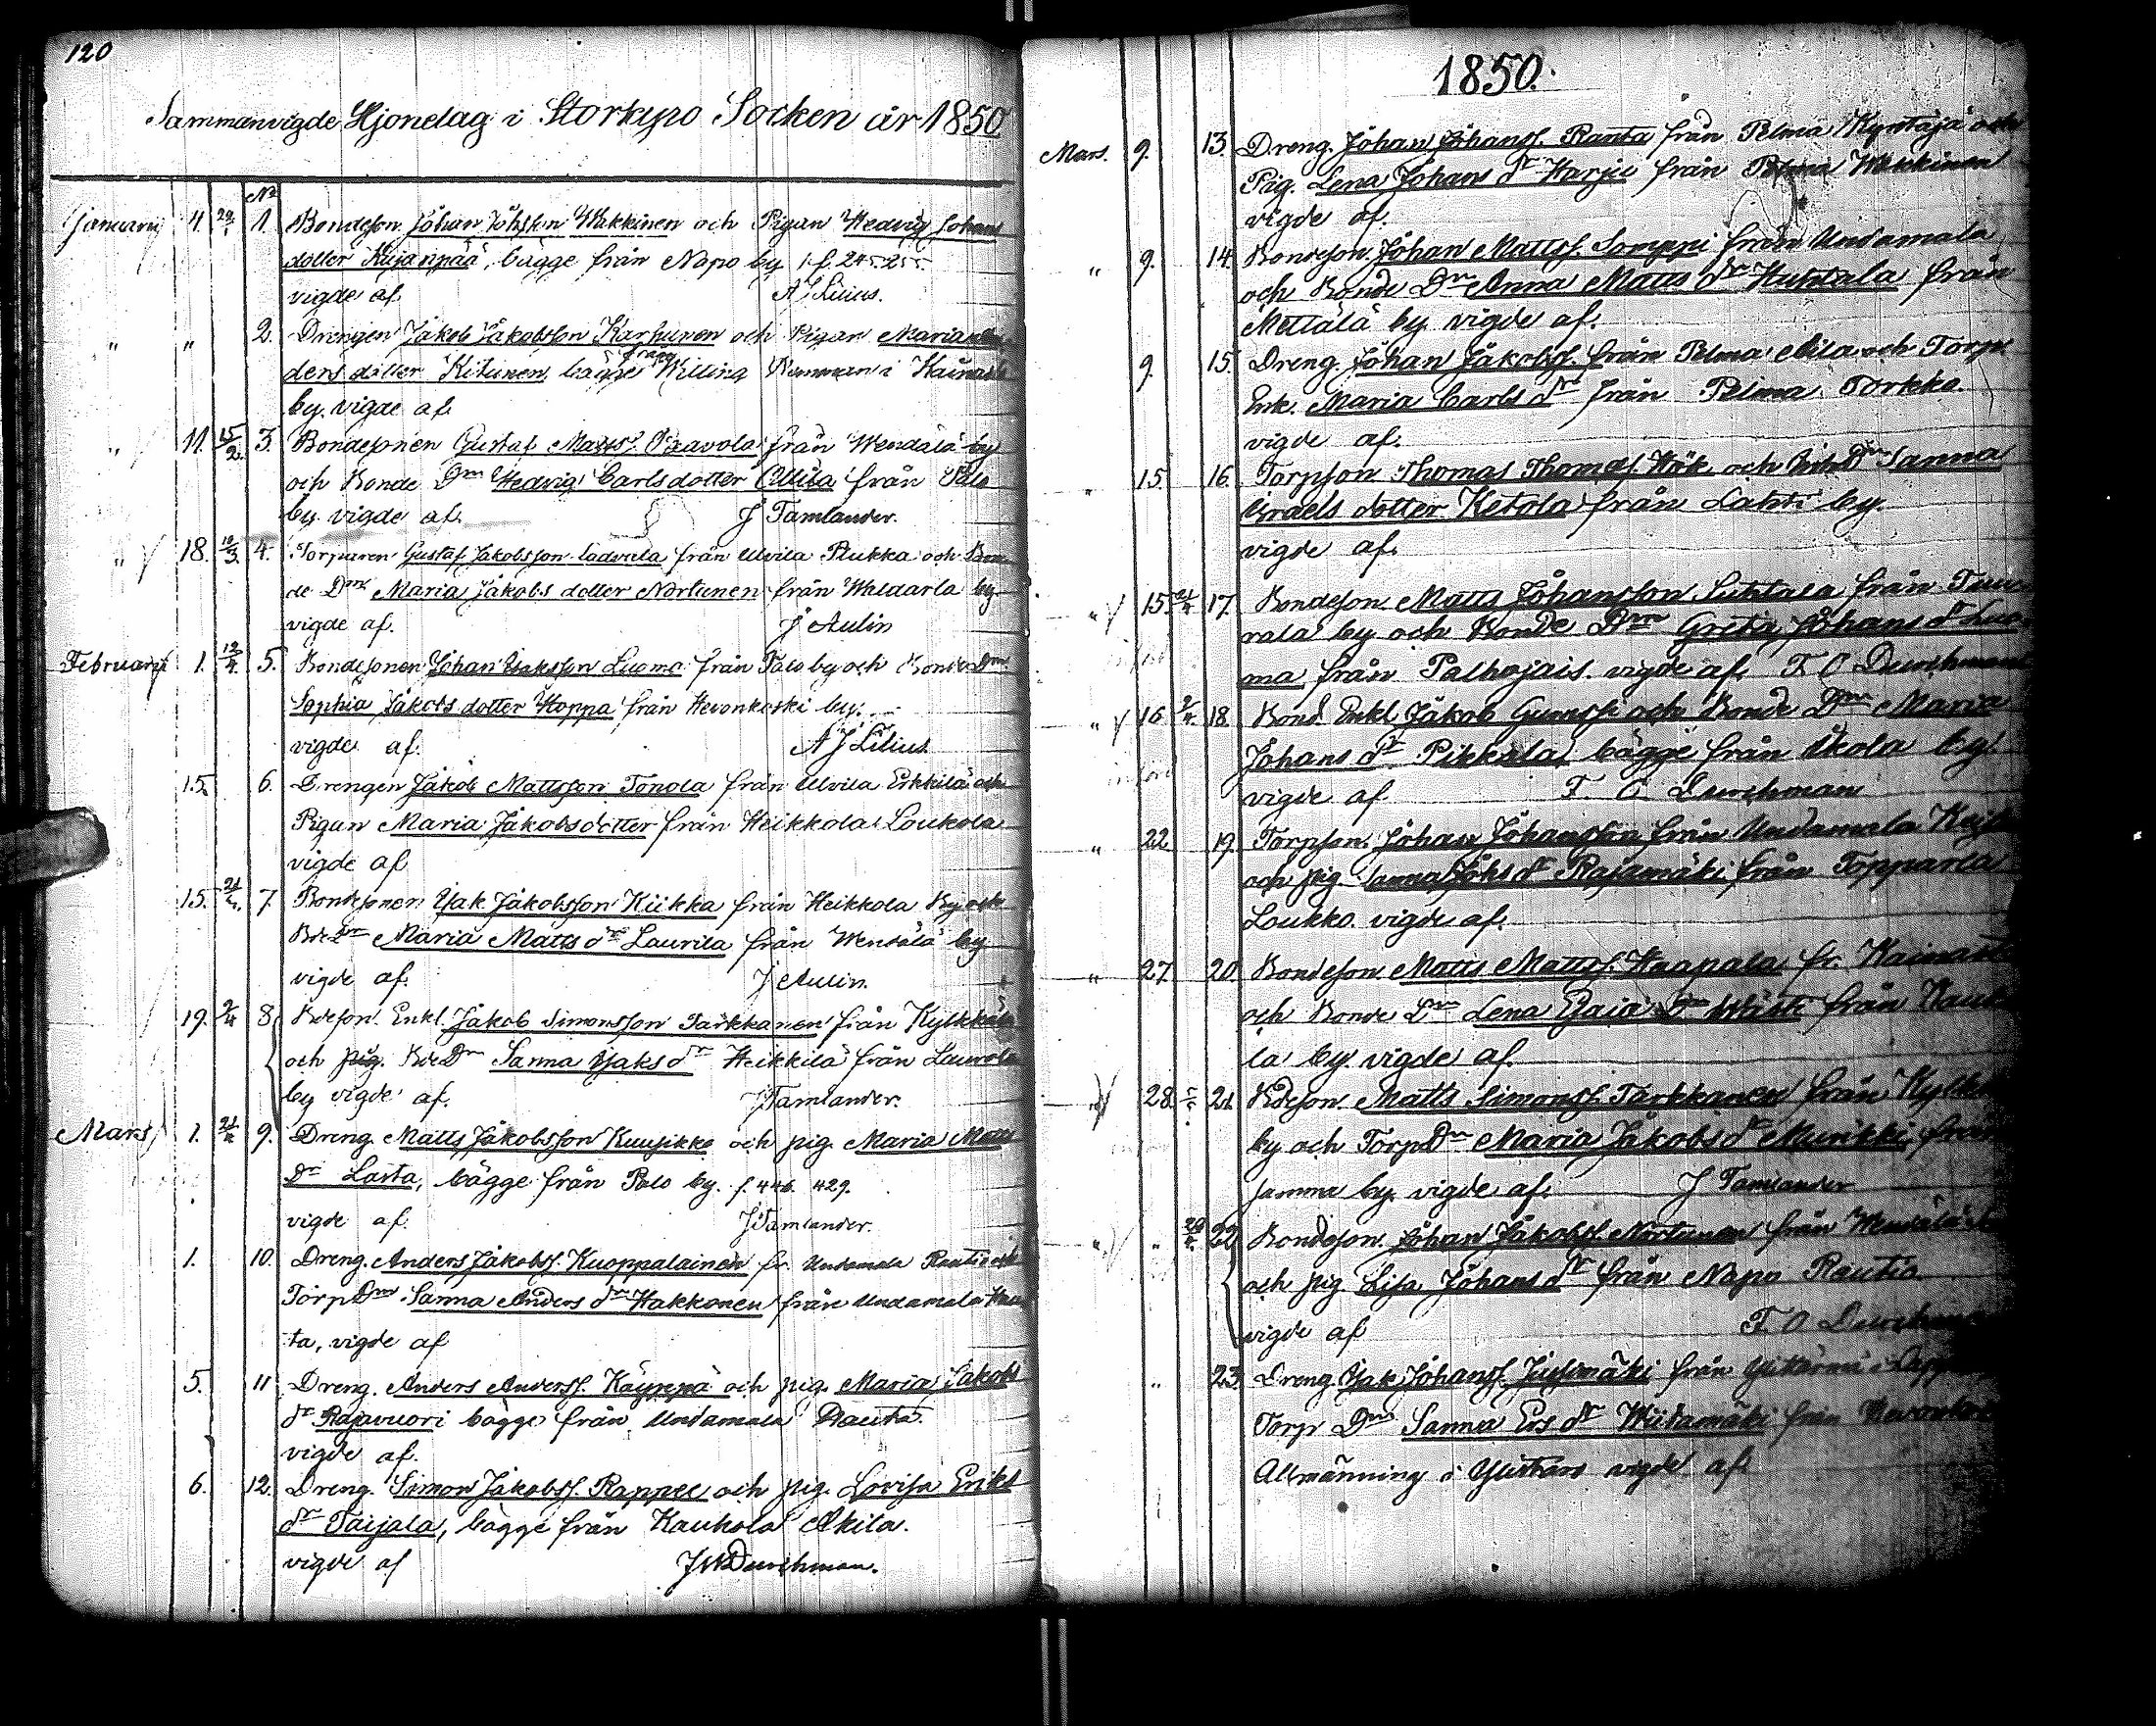 120
Sammanvigde Hjonelag i Storkyro Socken år 1850
No
January 4. 1. Bondeson Johan Johsson Wakkinen och Pigan Hedvig Johans
dotter Kujanpää, bägge från Napo by f. 245. 255.
vigde af A J Lilius.
" " 2. Drengen Jakob Jakobsson Karhunen och Pigan Maria
ders dotter Kitunen, bägge från Killing i
by. vigde af
" 11. 15/2. 3. Bondesonen Gustaf Matts. från Wendälä by
och Bonde Drn Hedvig Carlsdotter Ollila från Palo
by vigde af. J Tamlander.
" 18. 10/3. 4. Torparen Gustaf Jakobsson från Ulvila Pukka och Bon-
de Drn Maria Jakobs dotter Nortunen från by
vigde af. J Aulin
February 1. 12/4. 5. Bondesonen Johan Isaksson Luoma från Palo by och Bonde Drn
Sophia Jakobs dotter Hoppa från Hevonkoski by.
vigde af. A J Lilius
15. 6. Drengen Jakob Mattsson Tonola från Ulvila Erkkilä och
Pigan Maria Jakobsdotter från Heikkola Loukola
vigde af
15. 21/4. 7. Bondesonen Isak Jakobsson Kiikka från Heikkola By och
Bde Drn Maria Matts dr Laurila från Wendälä by
vigde af. J Aulin.
19. 2/4 8 Bdeson. Enkl. Jakob Simonsson Tarkkanen från
och pig. Bde Drn Sanna Isaks dr Heikkilä från
by vigde af. J Tamlander.
Mars 1. 21/4 9. Dreng. Matts Jakobsson Kuusikko och pig. Maria Matts
Dr Lasta, bägge från Palo by. f. 446. 429.
vigde af. J Tamlander.
1. 10. Dreng. Anders Jakobss. Kuoppalainen fr. Undamala Rautio och
Torp Drn Sanna Anders dr Hakkonen från Undamala
ta, vigde af
5. 11 Dreng. Anders Anderss. Käyppä och pig. Maria Jakobs
dr Rajavuori bägge från Undamala
vigde af.
6. 12. Dreng. Simon Jakobss. Rappee och pig. Lovisa Eriks
dr Taijala, bägge från Kaukola Akila.
vigde af Durchman.
1850.
Mars. 9. 13. Dreng. Johan Johanss. Ranta från Pelma Kyntäjä och
Pig. Lena Johans dr Harju från Pelma Wakkinen
vigde af.
" 9. 14. Bondeson. Johan Mattss. Somppi från Undamala
och Bonde Drn Anna Matts dr Huhtala från
Mettälä by vigde af.
9. 15. Dreng. Johan Jakobss. från Pelma Nila och Torp.
Enk. Maria Carls dr från Pelma Torkko.
vigde af.
" 15. 16. Torpson Thomas Thomass. Hök och Drn Sanna
Israels dotter Ketola från Lahti by.
vigde af.
" 15. 21/4 17. Bondeson. Matts Johansson Luhtala från
rala by och Bonde Drn Greta Johans dr Luo-
ma från Palhojais. vigde af. F. O Durchman
" 16. 2/4. 18. Bond. Enkl Jakob och Bonde Drn Maria
Johans dr Pikkala, bägge från Ikola by.
vigde af F. O. Durchman
" 22 19. Torpson. Johan Johansson från Undamala
och pig. Sanna Johs dr Rajamäki från Topparla
Loukko. vigde af.
" 27. 20. Bondeson Matts Mattss. Haapala fr.
och Bonde Drn Lena från
la by. vigde af.
28. 21. Bdeson. Matts Simonss. Tarkkanen från
by och Torp Drn Maria Jakobs dr Murikki, från
samma by. vigde af. J Tamlander
" 22 Bondeson Johan Jakobss. Nortunen från Wendälä
och pig Lisa Johans dr från Napo Rautio.
vigde af F. O Durchman
" 23. Dreng. Isak Johanss. från
Torp Drn Sanna Ers dr Wiitamäki från
Allmänning i vigde af